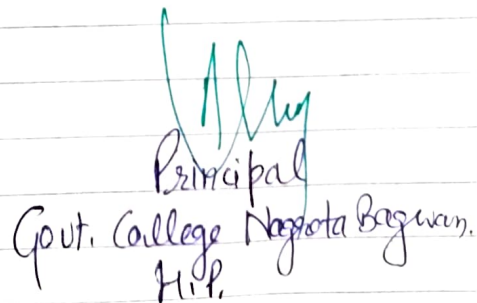 Principal
Govt. College Nagrota Bagwan.
H.P.